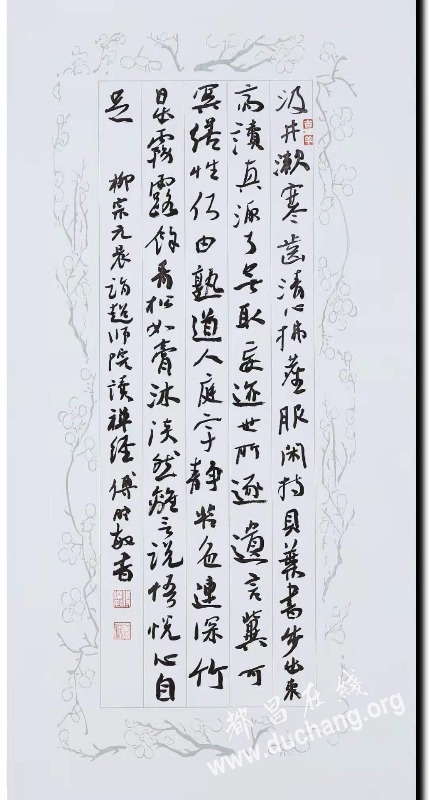 汲井漱寒齿清心拂塵服闲持貝葉书步出東
斋讀真源了無取妄迹世所逐遺言冀可
冥缮性何由熟道人庭宇静苔色連深竹
日出霧露馀青松如膏沐淡然離言說悟悦心自
足
柳宗元晨詣超师院读禅经 傅
都昌在线
www.duchang.org